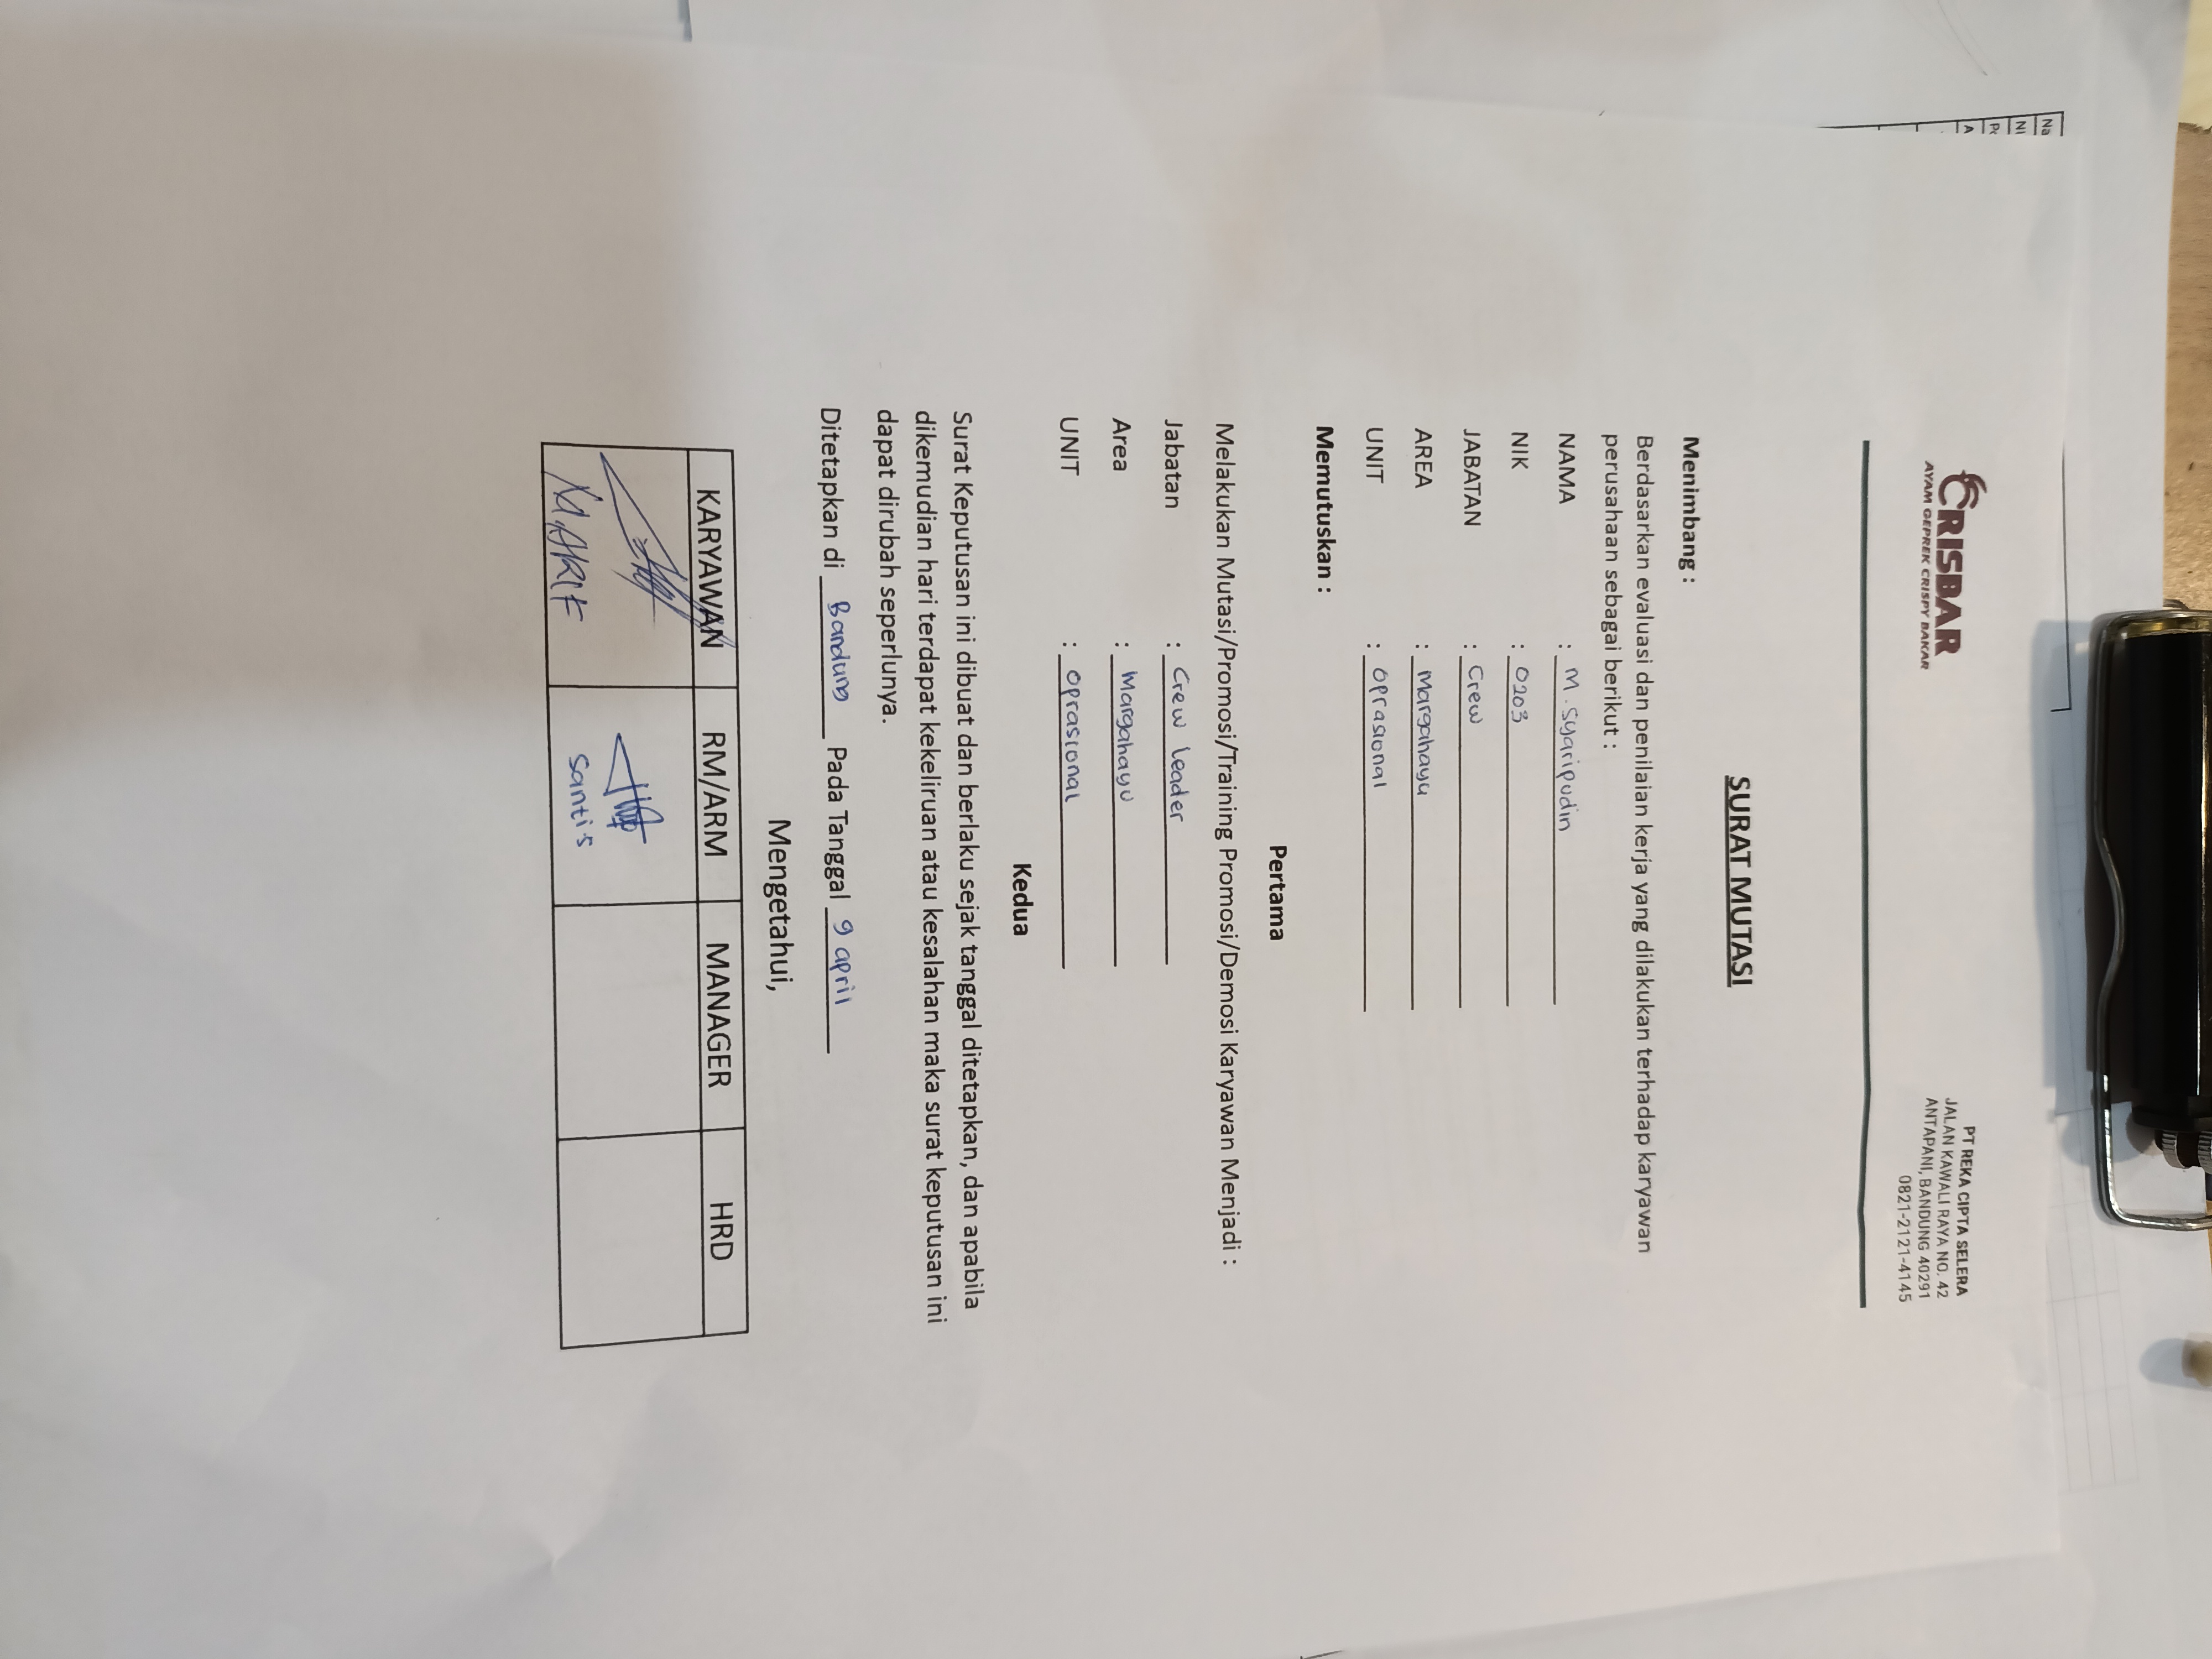 CRISBAR
AYAM GEPREK CRISPY BAKAR
PT REKA CIPTA SELERA
JALAN KAWALI RAYA NO. 42
ANTAPANI, BANDUNG 40291
0821-2121-4145
SURAT MUTASI
Menimbang :
Berdasarkan evaluasi dan penilaian kerja yang dilakukan terhadap karyawan
perusahaan sebagai berikut :
NAMA : M. Syaripudin
NIK : 0203
JABATAN : Crew
AREA : Margahayu
UNIT : Oprasional
Memutuskan :
Pertama
Melakukan Mutasi/Promosi/Training Promosi/Demosi Karyawan Menjadi :
Jabatan : Crew Leader
Area : Margahayu
UNIT : Oprasional
Kedua
Surat Keputusan ini dibuat dan berlaku sejak tanggal ditetapkan, dan apabila
dikemudian hari terdapat kekeliruan atau kesalahan maka surat keputusan ini
dapat dirubah seperlunya.
Ditetapkan di Bandung Pada Tanggal 9 april
Mengetahui,
KARYAWAN RM/ARM MANAGER HRD
Santi s
Na
NI
Po
A